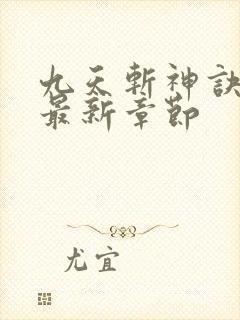 九天斬神訣
最新章節
尤宜